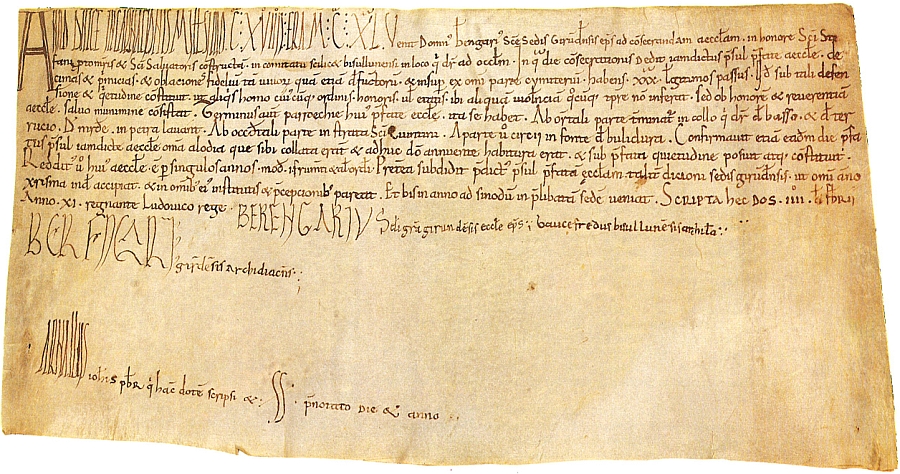 Anno Dnicę incarnationis M C XVIII ERA M C XLV Venit Domnꝰ berengariꝰ Scę Sedis Girundnsis ep̄s ad cōsecrandam aecclam. in honore Sc̄i Ste
fani ꝓtomr̄is & Sc̄i Salvatoris cōstructā. in comitatu scilicę bisullunensi. in loco q̇ dr̄ ad occlm̄. In q̇ die cōsecrationis Dedit iamdictus p̄sul p̄fatę aecclę. de
cimas & p̄micias. & oblacionē fidelium tam vivorꝝ quā etiā dfunctorū. & insuꝑ ex omi parte cymiteriū. habens. XXX. legitimos passus. Id sub tali defen
sione & q̇etudine cōstituit. ut aliq̇s homo cuiꝰcūq ordinis. honoris. ul etatis. ibi aliquam uiolencia q̇cūq tpre nō inferat. sed ob honorē & reverentiā
aecclę. salvo munimine cōsistat. Terminus aut parroechie huiꝰ p̄fatę ecclę. ita se habet. Ab ortali parte tminat in collo q dr̄ d basso. & d ter
rucio. D mrde. in petra lavent. Ab occidtali parte in strata Sc̄i Quintini. A parte ū circii in fonte d bulidura. Confirmavit etiā eadm die p̄fa
tus p̄sul iamdictę aecclę omā alodia que sibi collata erāt & adhuc dō annuente habitura erat. & sub p̄fata quietudine posuit atq cōstituit.
Reddit ū huiꝰ aecclę. ē ꝑ singulos annos. mod. Preterea subdidit p̄dictꝰ p̄sul p̄fatā ęcclam talit̄ dicioni sedis girundnsis. ut omi ano
xrisma ind accipiat. & in omib eiꝰ institutis & p̄cepcionib pareat. Et bis in anno ad sinodum in p̄libatā sedē veniat. SCRIPTA hec DOS. IIII. kl̄ fbrii
Anno. XI. regnante Ludovico rege. BERENGARIVS di gr̄a girundensis ecclę ep̄s
BERENGARI girdensis archidiacns
ARNALLUS iohis pbr̄ q̇ hāc dotē scripsi &. SS. p̄notato DIE & anno